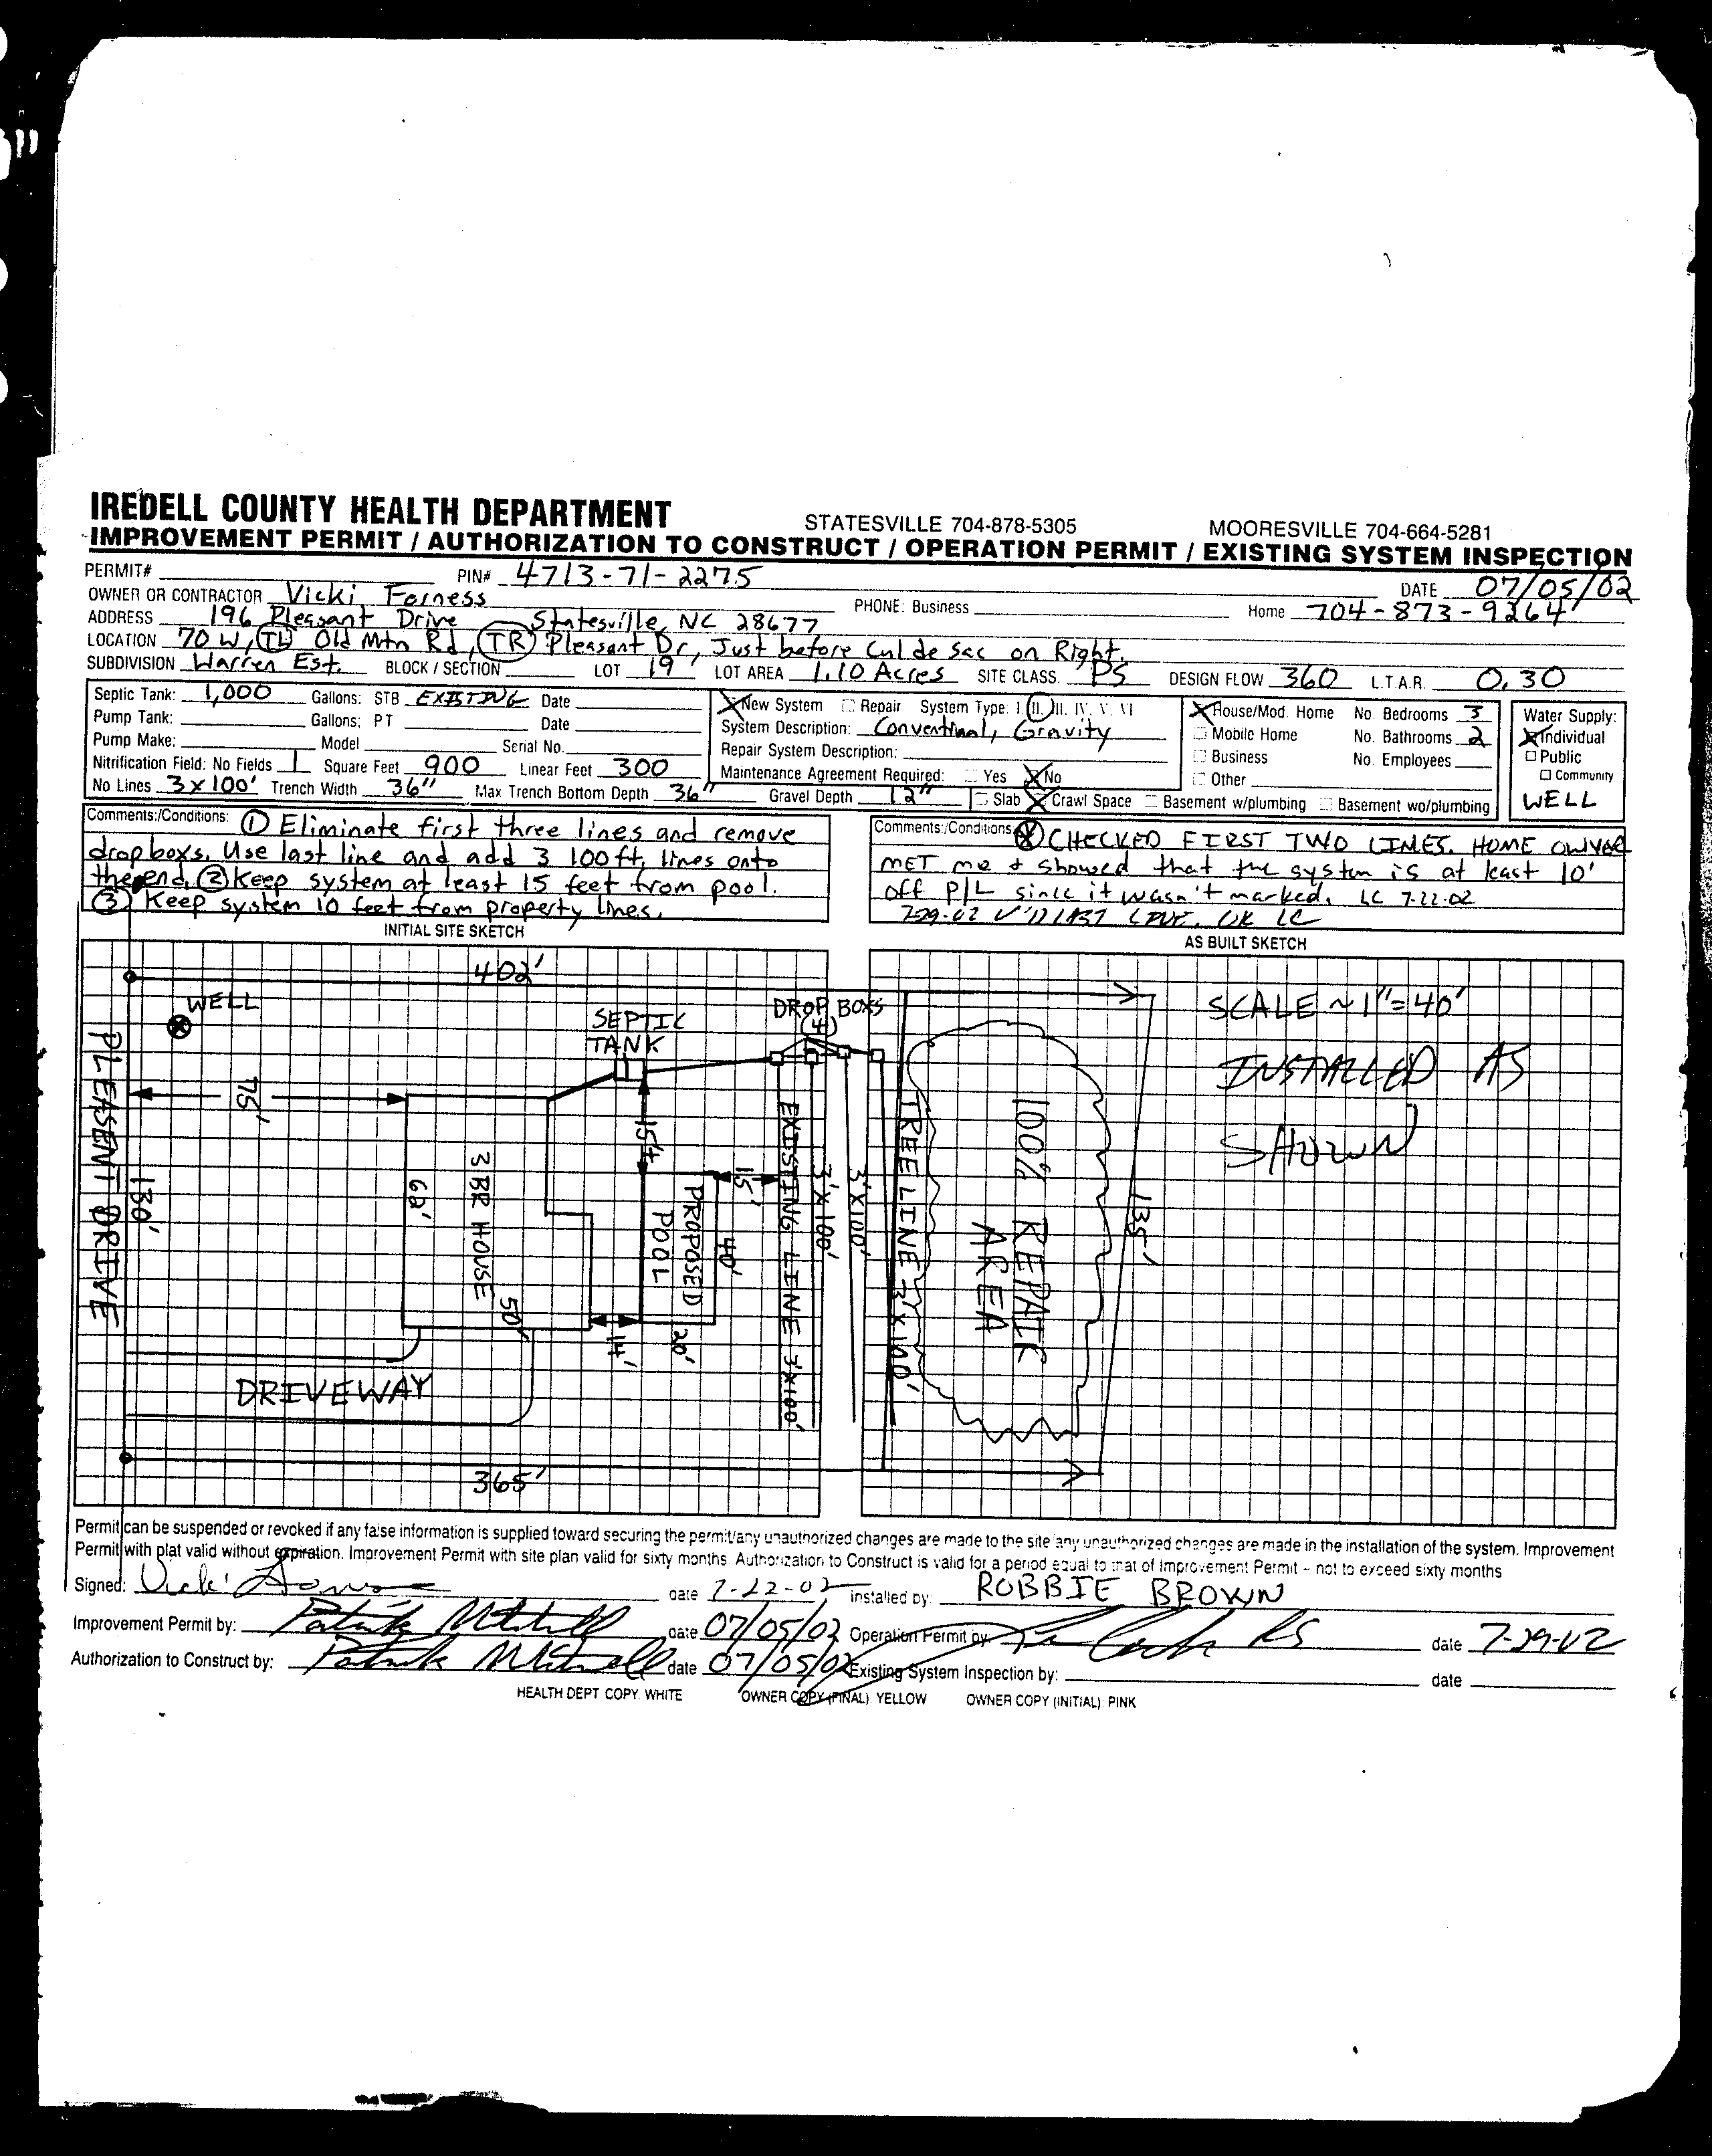 IREDELL COUNTY HEALTH DEPARTMENT STATESVILLE 704-878-5305 MOORESVILLE 704-664-5281
IMPROVEMENT PERMIT / AUTHORIZATION TO CONSTRUCT / OPERATION PERMIT / EXISTING SYSTEM INSPECTION
PERMIT# PIN# 4713-71-2275 DATE 07/05/02
OWNER OR CONTRACTOR Vicki Forness PHONE: Business Home 704-873-9264
ADDRESS 196 Pleasant Drive Statesville, NC 28677
LOCATION 70 W, TL Old Mtn Rd, TR Pleasant Dr, Just before Cul de sac on Right.
SUBDIVISION Warren Est. BLOCK / SECTION LOT 19 LOT AREA 1.10 Acres SITE CLASS. PS DESIGN FLOW 360 L.T.A.R. 0.30
Septic Tank: 1,000 Gallons: STB EXISTING Date
Pump Tank: Gallons: PT Date
Pump Make: Model Serial No.
Nitrification Field: No Fields 1 Square Feet 900 Linear Feet 300
No Lines 3 x 100' Trench Width 36" Max Trench Bottom Depth 36" Gravel Depth 12"
New System Repair System Type: I. II. III. IV. V. VI
System Description: Conventional, Gravity
Repair System Description:
Maintenance Agreement Required: Yes No
Slab Crawl Space Basement w/plumbing Basement wo/plumbing
House/Mod. Home No. Bedrooms 3
Mobile Home No. Bathrooms 2
Business No. Employees
Other
Water Supply:
Individual
Public
Community
WELL
Comments:/Conditions: ① Eliminate first three lines and remove
drop boxs. Use last line and add 3 100ft. lines onto
the end. ② Keep system at least 15 feet from pool.
③ Keep system 10 feet from property lines.
Comments:/Conditions CHECKED FIRST TWO LINES. HOME OWNER
MET me + showed that the system is at least 10'
off P/L since it wasn't marked. LC 7-22-02
7-29-02 V'D LAST LINE. OK LC
INITIAL SITE SKETCH
AS BUILT SKETCH
402'
WELL
SEPTIC
TANK
DROP BOXS
(4)
SCALE ~ 1"=40'
INSTALLED AS
SHOWN
PLEASENT DRIVE
130'
75'
62'
3 BR HOUSE
50'
15'+
PROPOSED
POOL
15'
40'
20'
14'
EXISTING LINE 3'x100'
3'x100'
3'x100'
TREE LINE
3'x100'
100% REPAIR
AREA
135'
DRIVEWAY
365'
Permit can be suspended or revoked if any false information is supplied toward securing the permit/any unauthorized changes are made to the site/any unauthorized changes are made in the installation of the system. Improvement
Permit with plat valid without expiration. Improvement Permit with site plan valid for sixty months. Authorization to Construct is valid for a period equal to that of Improvement Permit – not to exceed sixty months
Signed: Vicki date 7-22-02 Installed by: ROBBIE BROWN
Improvement Permit by: Patrick Mitchell date 07/05/02 Operation Permit by RS date 7-29-02
Authorization to Construct by: Patrick Mitchell date 07/05/02 Existing System Inspection by: date
HEALTH DEPT COPY. WHITE OWNER COPY (FINAL) YELLOW OWNER COPY (INITIAL) PINK